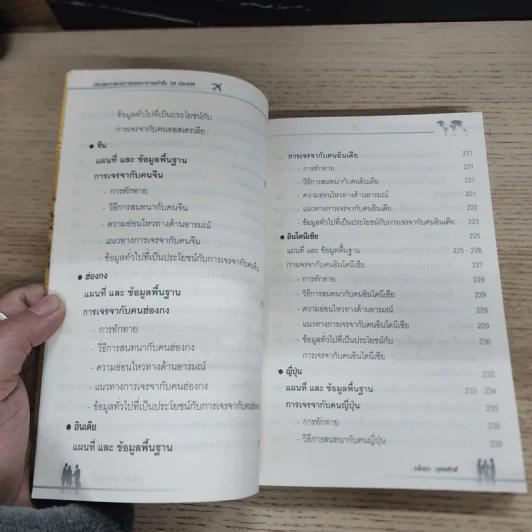 ข้อมูลทั่วไปที่เป็นประโยชน์กับ
การเจรจากับคนออสเตรเลีย
● จีน
แผนที่ และ ข้อมูลพื้นฐาน
การเจรจากับคนจีน
- การทักทาย
- วิธีการสนทนากับคนจีน
- ความอ่อนไหวทางด้านอารมณ์
- แนวทางการเจรจากับคนจีน
- ข้อมูลทั่วไปที่เป็นประโยชน์กับการเจรจากับคนจีน
● ฮ่องกง
แผนที่ และ ข้อมูลพื้นฐาน
การเจรจากับคนฮ่องกง
- การทักทาย
- วิธีการสนทนากับคนฮ่องกง
- ความอ่อนไหวทางด้านอารมณ์
- แนวทางการเจรจากับคนฮ่องกง
- ข้อมูลทั่วไปที่เป็นประโยชน์กับการเจรจากับคนฮ่องกง
● อินเดีย
แผนที่ และ ข้อมูลพื้นฐาน
การเจรจากับคนอินเดีย 217
- การทักทาย 221
- วิธีการสนทนากับคนอินเดีย 221
- ความอ่อนไหวทางด้านอารมณ์ 221
- แนวทางการเจรจากับคนอินเดีย 222
- ข้อมูลทั่วไปที่เป็นประโยชน์กับการเจรจากับคนอินเดีย 223
● อินโดนีเซีย 225
แผนที่ และ ข้อมูลพื้นฐาน 225 - 226
การเจรจากับคนอินโดนีเซีย 227
- การทักทาย 229
- วิธีการสนทนากับคนอินโดนีเซีย 229
- ความอ่อนไหวทางด้านอารมณ์ 229
- แนวทางการเจรจากับคนอินโดนีเซีย 229
- ข้อมูลทั่วไปที่เป็นประโยชน์กับ 230
การเจรจากับคนอินโดนีเซีย
● ญี่ปุ่น
แผนที่ และ ข้อมูลพื้นฐาน 233 - 234
การเจรจากับคนญี่ปุ่น 235
- การทักทาย
- วิธีการสนทนากับคนญี่ปุ่น